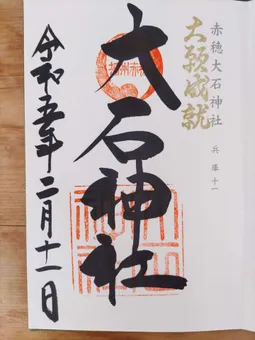 赤穂大石神社
兵庫十一
大願成就
大石神社
令和五年二月十一日